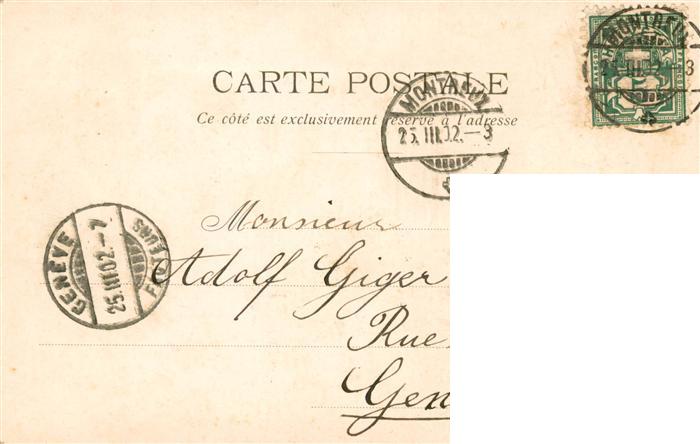 MONTREUX
25.III.02.–3
CARTE POSTALE
MONTREUX
25.III.02.–3
Ce côté est exclusivement réservé à l'adresse
Monsieur
Adolf Giger
Rue
Gen
GENÈVE
25.III.02.–7
FACTEURS